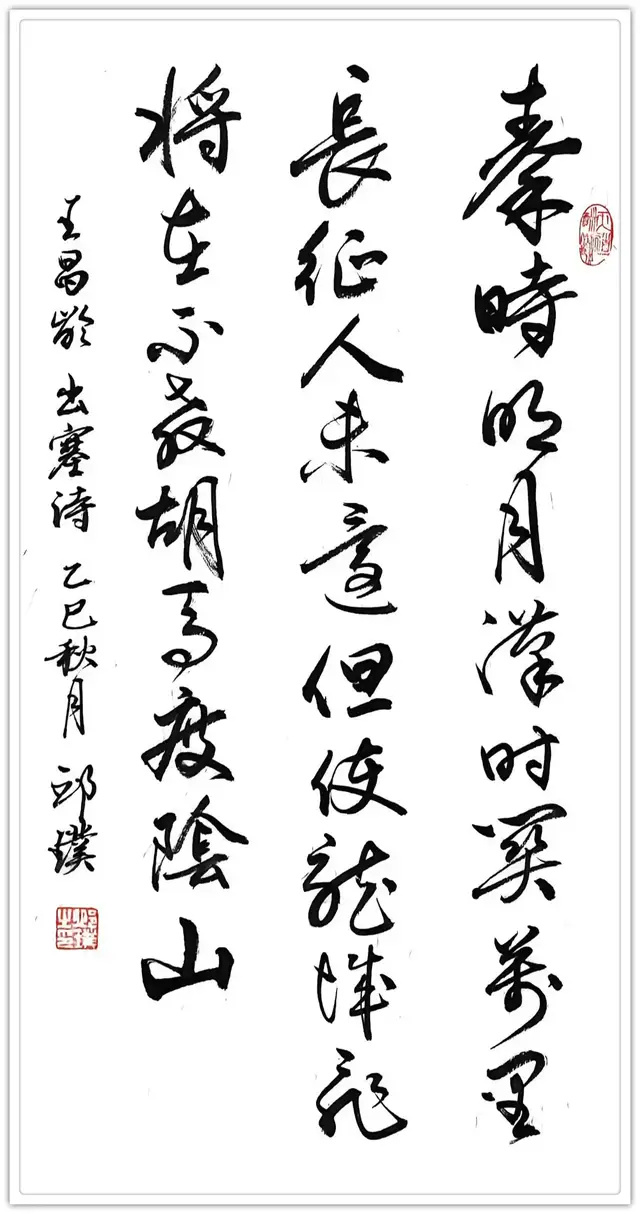 秦時明月漢时関萬里
長征人未還但使龍城飛
将在不教胡馬度陰山
王昌齡出塞诗乙巳秋月邱璞